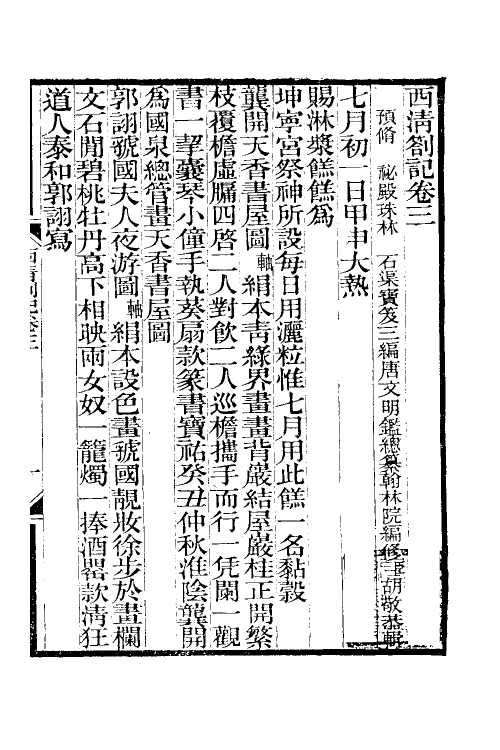 西清劄記卷三
預脩　祕殿珠林　石渠寶笈三編唐文明鑑總纂翰林院編修臣胡敬恭輯
七月初一日甲申大熱
賜淋漿餻餻爲
坤寧宮祭神所設每日用灑粒惟七月用此餻一名黏穀
龔開天香書屋圖軸絹本靑綠界畫畫背巖結屋巖桂正開繁
枝覆檐虛牖四啓二人對飲二人巡檐攜手而行一凭闌一觀
書一挈囊琴小僮手執葵扇款篆書寶祐癸丑仲秋淮陰龔開
爲國泉總管畫天香書屋圖
郭詡虢國夫人夜游圖軸絹本設色畫虢國靚妝徐步於畫欄
文石閒碧桃牡丹高下相映兩女奴一籠燭一捧酒罍款淸狂
道人泰和郭詡寫
西清劄記卷三
一